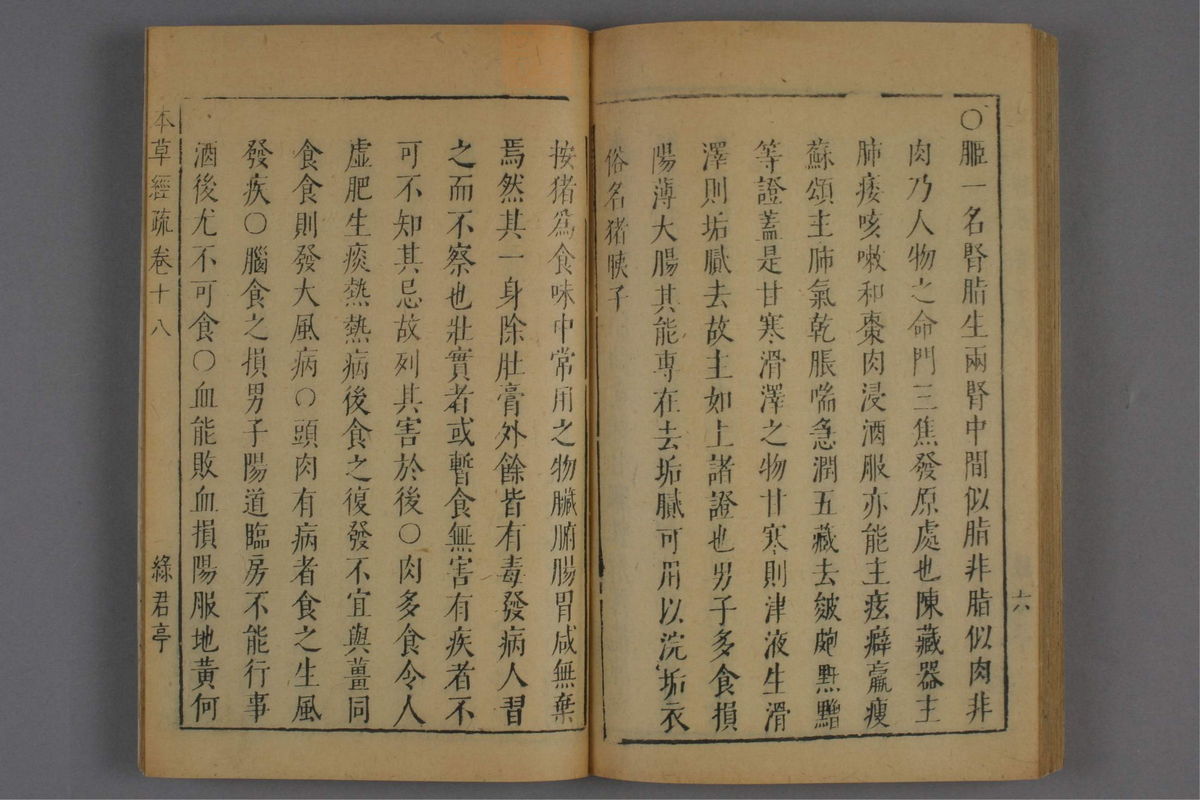 〇脤一名腎脂生兩腎中間似脂非脂似肉非
肉乃人物之命門三焦發原處也陳藏器主
肺痿咳嗽和棗肉浸酒服亦能主痃癖羸瘦
蘇頌主肺氣乾脹喘急潤五藏去皴皰䵟黵
等證蓋是甘寒滑澤之物甘寒則津液生滑
澤則垢膩去故主如上諸證也男子多食損
陽薄大腸其能專在去垢膩可用以浣垢衣
俗名猪胰子
六
按猪爲食味中常用之物臟腑腸胃咸無棄
焉然其一身除肚膏外餘皆有毒發病人習
之而不察也壯實者或暫食無害有疾者不
可不知其忌故列其害於後〇肉多食令人
虛肥生痰熱熱病後食之復發不宜與薑同
食食則發大風病〇頭肉有病者食之生風
發疾〇腦食之損男子陽道臨房不能行事
酒後尤不可食〇血能敗血損陽服地黄何
本草經疏卷十八
綠君亭